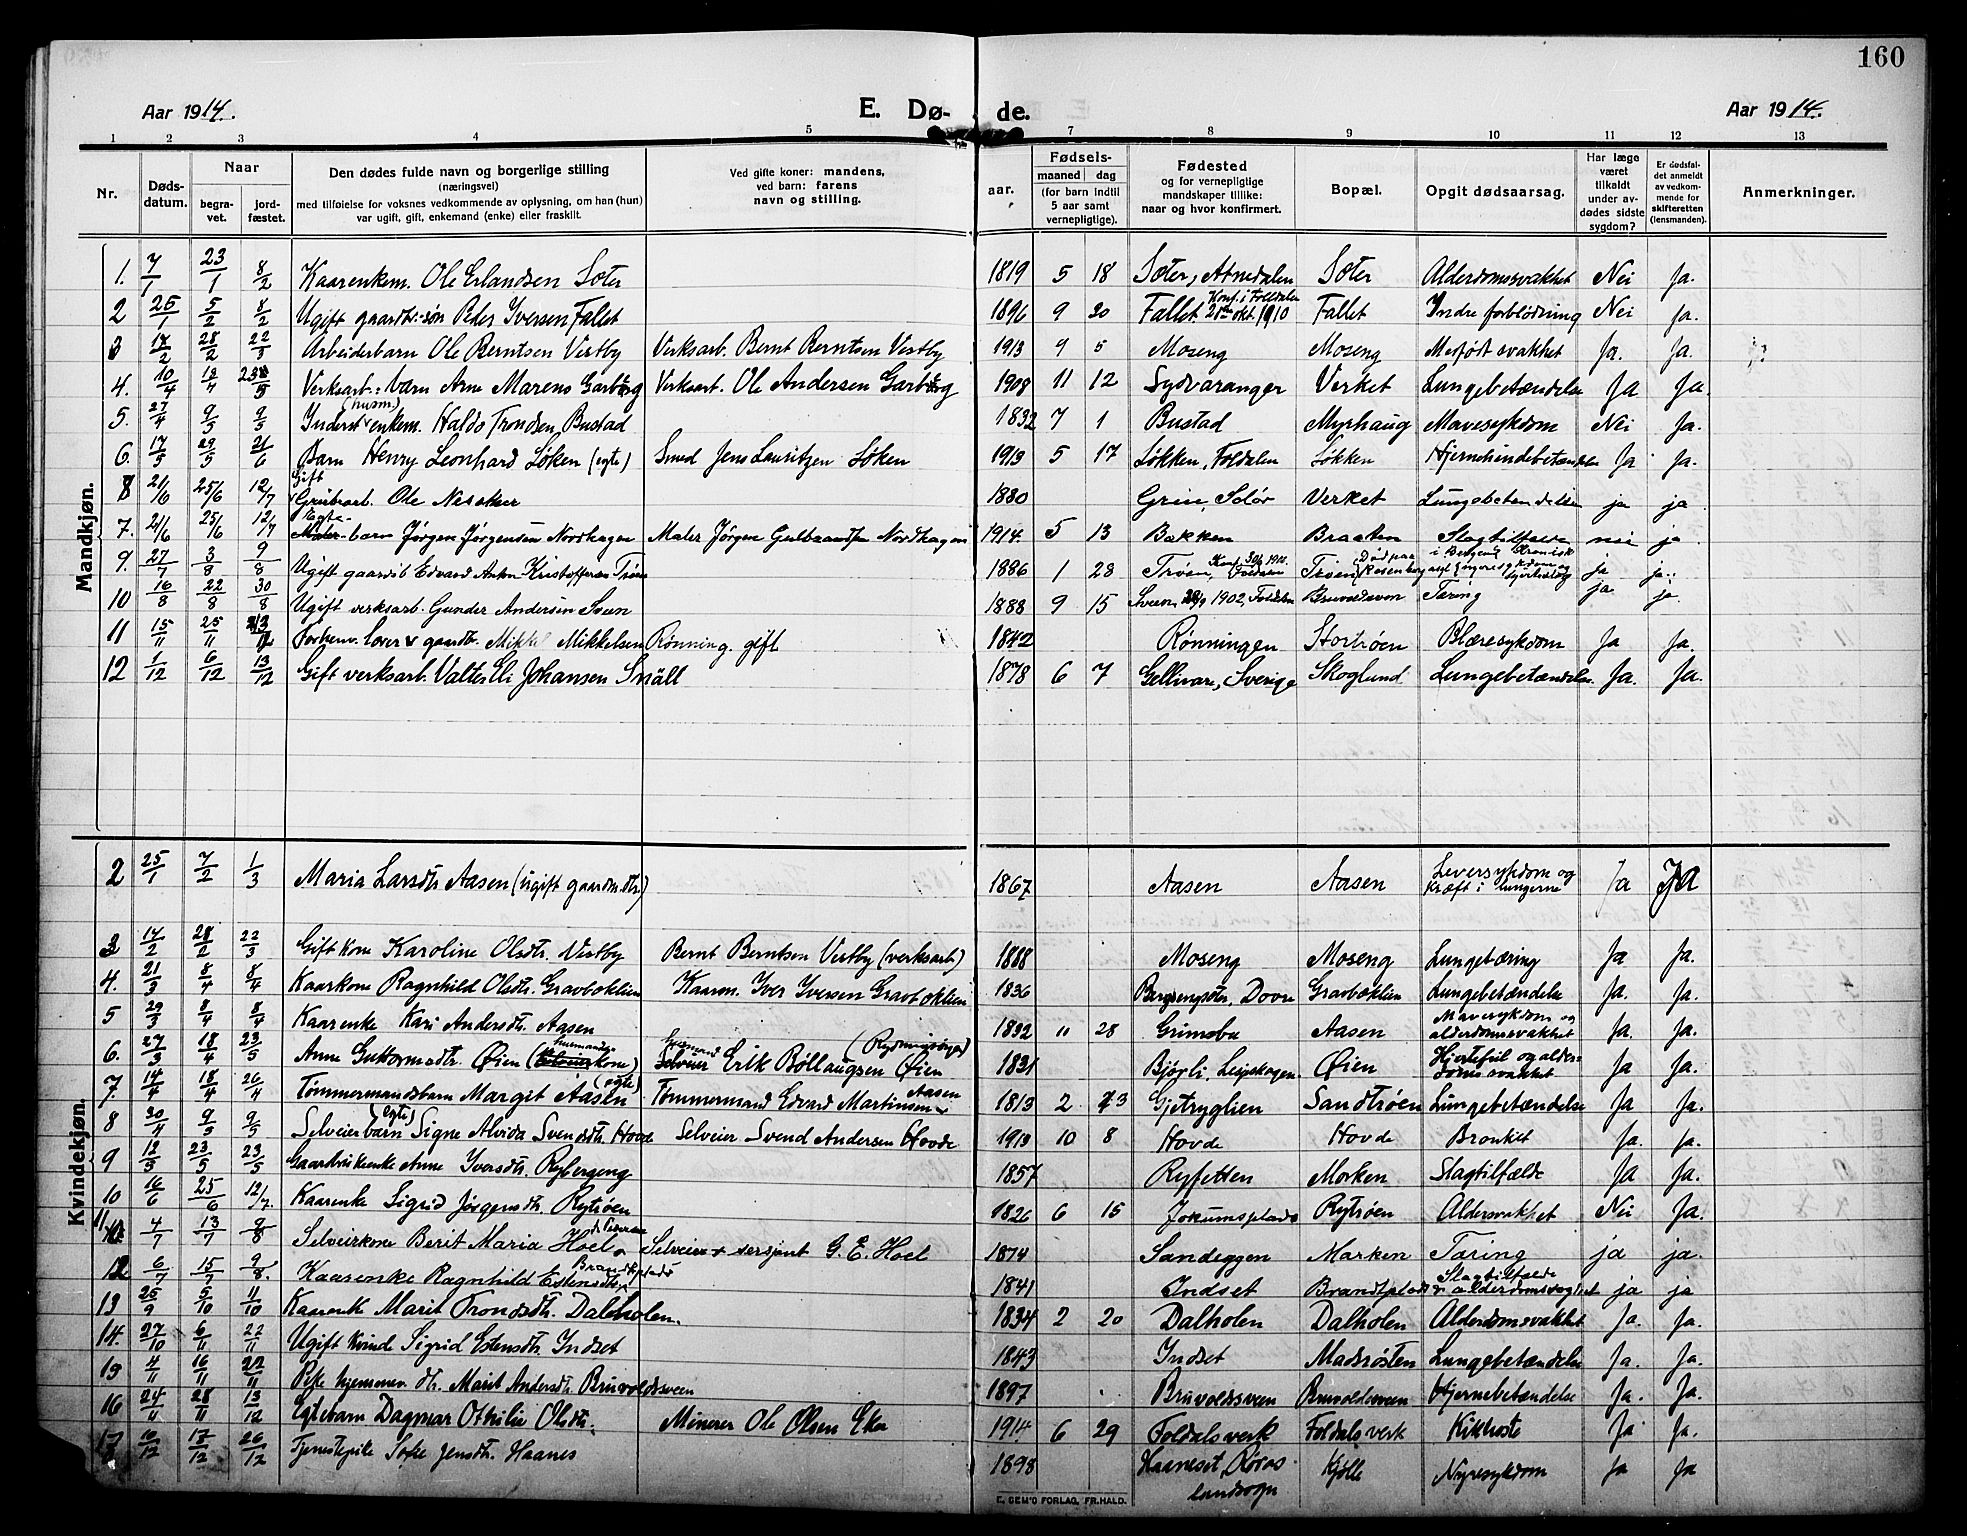 160
Aar 1914. E. Dø- de. Aar 1914.
1 2 3 4 5 7 8 9 10 11 12 13
Nr. Døds-datum. Naar begra-vet. jord-fæstet. Den dødes fulde navn og borgerlige stilling (næringsvei) med tilføielse for voksnes vedkommende av oplysning, om han (hun) var ugift, gift, enkemand (enke) eller fraskilt. Ved gifte koner: mandens, ved barn: farens navn og stilling. aar. Fødsels- maaned dag (for barn indtil 5 aar samt vernepligtige). Fødested og for vernepligtige mandskaper tillike: naar og hvor konfirmert. Bopæl. Opgit dødsaarsag. Har læge været tilkaldt under av-dødes sidste sygdom? Er dødsfal-det anmeldt av vedkom-mende for skifteretten (lensmanden). Anmerkninger.
Mandkjøn.
1. 7/1 23/1 8/2 Kaarenkem. Ole Erlandsen Sæter 1819 5 18 Sæter, Atnedalen Sæter Alderdomssvakhet Nei Ja.
2 25/1 5/2 8/2 Ugift gaardbr.søn Peder Iversen Fallet 1896 9 20 Fallet. Konf. i Foldalen 2den okt. 1910 Fallet Indre forblødning Nei Ja.
3 14/2 28/2 22/3 Arbeiderbarn Ole Berntsen Vestby Verksarb. Bernt Berntsen Vestby 1913 9 5 Moseng Moseng Medfødt svakhet Ja. Ja.
4. 10/4 19/4 23/5 Verksarb. barn Arne Marens Garberg Verksarb. Ole Andersen Garberg 1908 11 12 Sydvaranger Verket Lungebetændelse Ja Ja.
5. 27/4 9/5 9/5 Inderst (husm) enkem. Haldo Trondsen Bustad 1832 7 1 Bustad Myrhaug Mavesykdom Nei Ja.
6. 17/5 29/5 21/6 Barn Henry Leonhard Løken (egte) Smed Jens Lauritzen Løken 1913 5 17 Løkken, Foldalen Løkken Hjernehindebetændelse Ja Ja.
8 21/6 25/6 12/7 Gift Grubearb. Ole Næsaker 1880 Grin, Solør Verket Lungebetændelse ja ja
7. 21/6 25/6 12/7 Egte- barn Jørgen Jørgensen Nordhagen Maler Jørgen Gulbrandsen Nordhagen 1914. 5 13 Bakken Braaten Slagtilfælde nei ja
9. 27/7 3/8 9/8 Ugift gaardb Edvard Anton Kristoffersen Trøen 1886 1 28 Trøen, Foldalen Trøen (Død paa Rosenberg i Bergen) Kronisk nyresykdom og hjertelidelse ja ja.
10 16/8 22/8 30/8 Ugift verksarb. Gunder Andersen Sveen 1888 9 15 Sveen, 1902, Foldalen Bruvoldsveen Tæring ja ja
11 15/11 25/11 Forhenv. lærer & gaardbr. Mikkel Mikkelsen Rønning. gift 1842 Rønningen Stortrøen Blæresykdom Ja Ja.
12 1/12 6/12 13/12 Gift verksarb. Valter Eli Johansen Snäll 1878 6 7 Gellivare, Sverige Skoglund Lungebetændelse. Ja. Ja.
Kvindekjøn.
2 25/1 7/2 1/3 Maria Larsdtr Aasen (ugift gaardm.dtr.) 1867 Aasen Aasen Leversykdom og kræft i lungerne Ja Ja
3 14/2 28/2 22/3 Gift kone Karoline Olsdtr. Vestby Bernt Berntsen Vestby (verksarb) 1888 Moseng Moseng Lungetæring Ja Ja.
4. 21/3 8/4 8/4 Kaarkone Ragnhild Olsdtr. Gravbæklien Kaarm. Iver Iversen Gravbæklien 1836 Bergsengsæter, Dovre Gravbæklien Lungebetændelse Ja. Ja.
5 29/3 8/4 8/4 Kaarenke Kari Andersdtr. Aasen 1832 11 28 Grimsbu Aasen Mavesykdom og alderdomssvakhet Ja. Ja.
6. 27/3 18/4 23/5 Anne Guttormsdtr. Øien (husmands kone) Husmand Erik Bøllaugsen Øien (Rydningsøyen) 1831 Bjørli, Lesjeskogen Øien Hjertefeil og alder-domssvakhet Ja Ja.
7. 14/4 18/4 26/4 Tømmermandsbarn Margit Aasen (egte) Tømmermand Edvard Martinsen Aasen 1913 2 3 Gjetryglien Sandtrøen Lungebetændelse Ja Ja.
8 30/4 9/5 9/5 Selveierbarn (egte) Signe Alvida Svendsdtr. Hovde Selveier Svend Andersen Hovde 1913 10 8 Hovde Hovde Bronkit Ja. Ja.
9 12/5 23/5 23/5 Gaardbrukenke Anne Iversdtr. Rybergeng 1857 Ryfetten Morken Slagtilfælde Ja Ja.
10 16/6 25/6 12/7. Kaarenke Sigrid Jørgensdtr. Rytrøen 1826 6 15 Jokumsplads Rytrøen Aldersvakhet Nei Ja.
11. 4/7 13/7 9/8 Selveierkone Berit Maria Hoel Selveier & sersjant G. E. Hoel 1874 Sandeggen Marken Tæring ja ja.
12 6/7 15/7 9/8. Kaarenke Ragnhild Estensdtr. Brandtplads 1841 Indset Brandtplads Slagtilfælde & alderdomssvaghet ja ja
13 25/9 5/10 11/10 Kaarenk Marit Trondsdtr. Dalholen. 1834 2 20 Dalholen Dalholen Alderdomssvakhet Ja. Ja.
14. 27/10 6/11 22/11 Ugift kvind Sigrid Estensdtr. Indset 1843 Indset Madsrøsten Lungebetændelse Ja. Ja.
15 4/11 16/11 22/11 Pike hjemmev. dtr. Marit Andersdtr. Bruvoldsveen 1897 Bruvoldsveen Bruvoldsveen Hjernebetændelse Ja. Ja.
16 24/11 28/11 13/12 Egtebarn Dagmar Othilie Olsdtr. Minerer Ole Olsen Eka 1914 6 29 Foldals verk Foldals verk Kikhoste Ja Ja.
17 10/12 17/12 26/12 Tjenestepike Sofie Jensdtr. Haanes 1898 Haaneset, Røros landsogn Kjølle Nyresykdom Ja Ja
E. SEM'S FORLAG, FR.HALD.